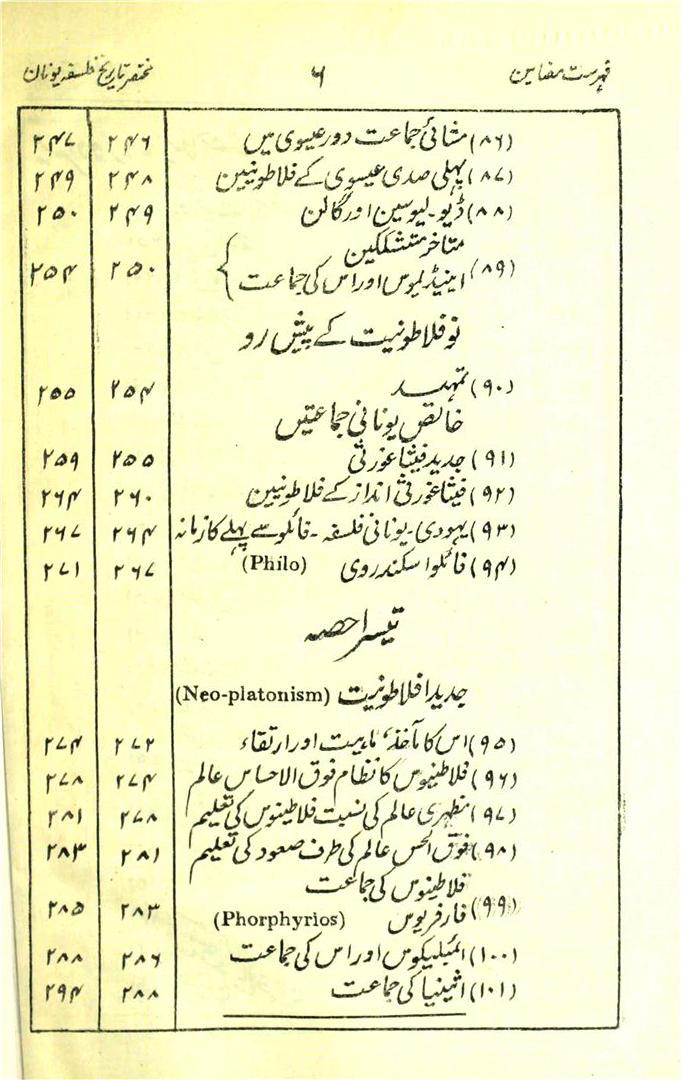 فہرست مضامین ۶ مختصر تاریخ فلسفہ یونان
(۸۶) مشائی جماعت دور عیسوی میں ۲۴۶ ۲۴۷
(۸۷) پہلی صدی عیسوی کے فلاطونیین ۲۴۸ ۲۴۹
(۸۸) ڈیو۔ لیوسین اور گالن ۲۴۹ ۲۵۰
متاخر متشککین
(۸۹) اینیڈیموس اور اس کی جماعت ۲۵۰ ۲۵۴
نو فلاطونیت کے پیش رو
(۹۰) تمہید ۲۵۴ ۲۵۵
خالص یونانی جماعتیں
(۹۱) جدید فیثاغورثی ۲۵۵ ۲۵۹
(۹۲) فیثاغورثی انداز کے فلاطونیین ۲۶۰ ۲۶۴
(۹۳) یہودی۔ یونانی فلسفہ۔ فائلو سے پہلے کا زمانہ ۲۶۴ ۲۶۷
(۹۴) فائلو اسکندروی (Philo) ۲۶۷ ۲۷۱
تیسرا حصہ
جدید افلاطونیت (Neo-platonism)
(۹۵) اس کا مآخذ، ماہیت اور ارتقاء ۲۷۲ ۲۷۴
(۹۶) فلاطینوس کا نظام فوق الاحساس عالم ۲۷۴ ۲۷۸
(۹۷) مظہری عالم کی نسبت فلاطینوس کی تعلیم ۲۷۸ ۲۸۱
(۹۸) فوق الحس عالم کی طرف صعود کی تعلیم ۲۸۱ ۲۸۳
فلاطینوس کی جماعت
(۹۹) فارفریوس (Phorphyrios) ۲۸۳ ۲۸۵
(۱۰۰) ائمبلیکوس اور اس کی جماعت ۲۸۶ ۲۸۸
(۱۰۱) اثینیا کی جماعت ۲۸۸ ۲۹۴